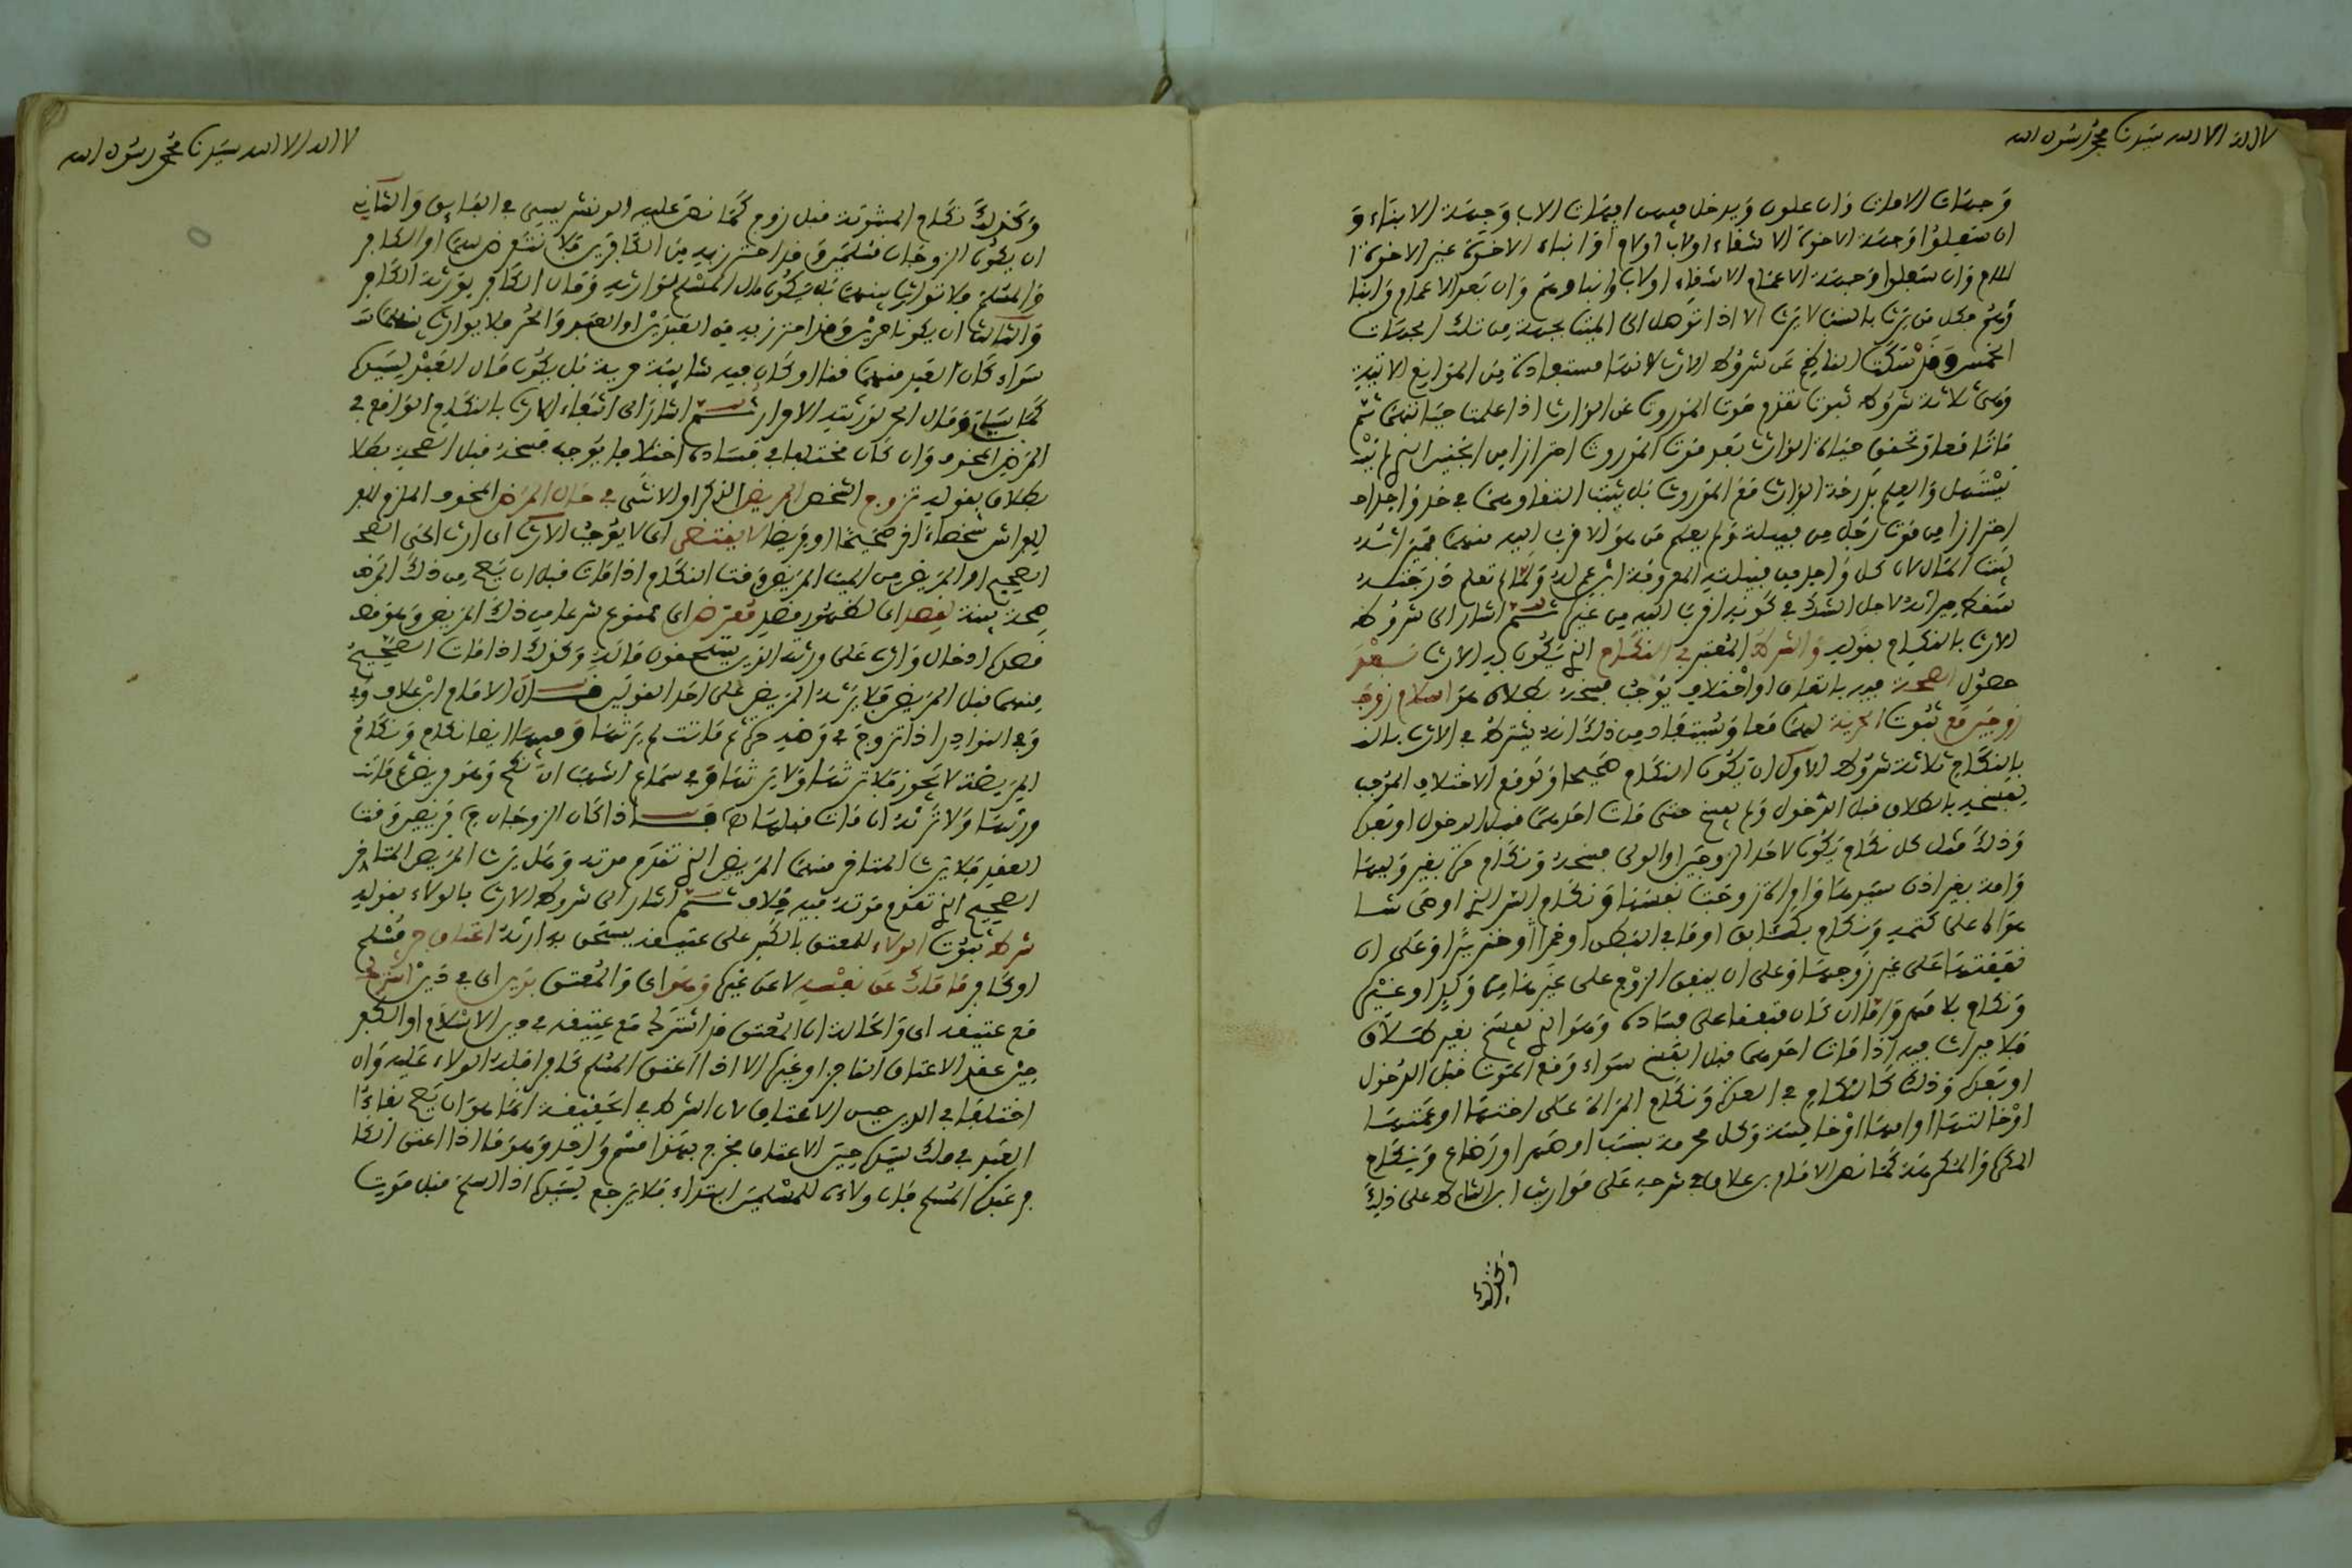 لا اله الا الله سيدنا محمد رسول الله
وجهات الامهات وان علون ويدخل فيهن امهات الاب وجهة الابناء و
ان سفلوا وجهة الاخوة الاشقاء او لاب او لام او ابناء الاخوة غير الاخوة ا
للام وان سفلوا وجهة الاعمام الاشقاء او لاب وابناوهم وان بعد الاعمام وابنا
وهم فكل من يرث بالنسب لا يرث الا اذا توصل الى الميت بجهة من تلك الجهات
الخمس وقد سكت الناظم عن شروط الارث لانها مستفادة من الموانع الاتية
وهي ثلاثة شروط ثبوت تقدم موت الموروث عن الوارث اذا علمت حياتهما ثم
ماتا معا وتحقق حياة الوارث بعد موت الموروث احترازا من الجنين الذي لم
يستهل والعلم بدرجة الوارث مع الموروث بان يثبت التقاوهما في جد واحد
احترازا من موت رجل من قبيلة ولم يعلم من هو الاقرب اليه منهم فميراثه
لبيت المال لان كل واحد من قبيلته المعروفة ابن عم له ولما لم تعلم درجته
سقط ميراثه لاجل الشك في كونه اقرب اليه من غيره ثم اشار الى شروط
الارث بالنكاح بقوله والشرط المعتبر في النكاح الذي يكون به الارث
حصول الصحة فيه باتفاق او اختلاف يوجب فسخه بطلاق مع اسلام زوج
زوجين مع ثبوت الحرية لهما معا ويستفاد من ذلك انه يشترط في الارث
بالنكاح ثلاثة شروط الاول ان يكون النكاح صحيحا وتوقع الاختلاف الموجب
لفسخه بالطلاق قبل الدخول ولم يفسخ حتى مات احدهما قبل الدخول او بعده
وذلك مثل كل نكاح يكون لاحد الزوجين او الولي فسخه ونكاح حرة بغير وليها
وامة بغير اذن سيدها وامراة زوجت نفسها ونكاح السر الذي اوصى
على كتمه ونكاح او خمرا او خنزيرا او على ان
نفقتها على غير زوجها او على ان ينفق الزوج على غيرها من ولد او غيره
ونكاح بلا مهر واما ان كان متفقا على فساده وهو الذي يفسخ بغير طلاق
فلا ميراث فيه اذا مات احدهما قبل الفسخ سواء وقع الموت قبل الدخول
او بعده وذلك كالنكاح في العدة ونكاح المراة على اختها او عمتها
او خالتها وكل محرمة بنسب او صهر او رضاع ونكاح
المكره والمكرهة كما نص الامام بن علاق في شرحه على مواريث ابن الشاط على ذلك
وكذلك
لا اله الا الله سيدنا محمد رسول الله
وكذلك نكاح المبتوتة قبل زوج كما نص عليه الونشريسي في الفايق والثاني
ان يكون الزوجان مسلمين وقد احترز به من الكافرين فلا نتعرض لهما او الكافر
والمسلم فلا توارث بينهما بل يكون مال المسلم لوارثيه ومال الكافر لورثة الكافر
والثالث ان يكونا حرين وقد احترز به من العبدين او العبد والحر فلا يوارث بينهما
سواء كان العبد منهما قنا او كان فيه شايبة حرية بل يكون مال العبد لسيده
كما سياتي ومال الحر لورثته الاحرار ثم اشار الى انتفاء الارث بالنكاح الواقع في
المرض المخوف وان كان مختلفا في فساده اختلافا يوجب فسخه قبل الصحة بطلا
بطلاق بقوله تزوج الشخص المريض الذكر او الانثى في حال المرض المخوف الملازم
للفراش شخصا اخر صحيحا او مريضا لا يقتضي اي لا يوجب الارث اي ارث الحي الصحـ
الصحيح او المريض من الميت المريض وقت النكاح اذا مات قبل ان يصح من ذلك المرض
صحة بينة لفصد اي لظهور فصد معترض اي ممنوع شرعا من ذلك المريض وهو قصد
قصده ادخال وارث على ورثته الذين يستحقون ماله وكذلك اذا مات الصحيح
منهما قبل المريض فلا يرثه المريض على احد القولين قال الامام ابن علاق وفي
وفي النوادر اذا تزوج في مرضه حرة ثم ماتت لم يرثها وفيها ايضا نكاح ونكاح
المريضة لا يجوز فلا ترثها ولا يرثها وفي سماع اشهب ان نكح وهو مريض ثم ماتت
ورثها ولا ترثه ان مات قبلها اذا كان الزوجان مريضين وقت
العقد فلا يرث المتاخر منهما المريض الذي تقدم موته وهل يرث المريض المتاخر
الصحيح الذي تقدم موته فيه خلاف ثم اشار الى شروط الارث بالولاء بقوله
شرط ثبوت الولاء للمعتق بالكسر على عتيقه يستحق به ارثه اعتاق حر مسلم
او كافر ما ملك عن نفسه لا عن غيره وهو اي والمعتق بري اي في دين اشترك
مع عتيقه اي والحالة ان المعتق قد اشترك مع عتيقه في دين الاسلام او الكفر
حين عقد الاعتاق الناجز او غيره الا اذا اعتق المسلم كافرا فله الولاء عليه وان
اختلفا في الدين حين الاعتاق لان الشرط في الحقيقة انما هو ان يصح بقاء
العبد في ملك سيده حين الاعتاق فخرج بهذا قسم واحد وهو ما اذا اعتق الكا
فر عبده المسلم فان ولاءه للمسلمين ابتداء فلا يرجع لسيده اذا اسلم قبل موت